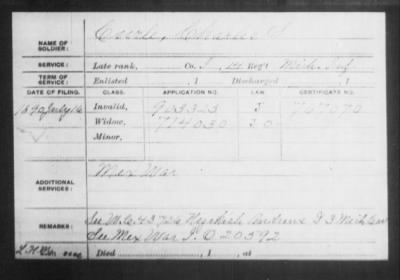 NAME OF SOLDIER: Charles S
SERVICE: Late rank, Co. I, 14 Reg't Mich. Inf
TERM OF SERVICE: Enlisted , 1 Discharged , 1
DATE OF FILING. CLASS. APPLICATION NO. LAW. CERTIFICATE NO.
1890 July 14 Invalid, J 707070
Widow, 714030
Minor,
ADDITIONAL SERVICES: Mex War
REMARKS: See W.C. Andrew D 3 Mich Cav
See Mex War S.O 20592
Died , 1 , at